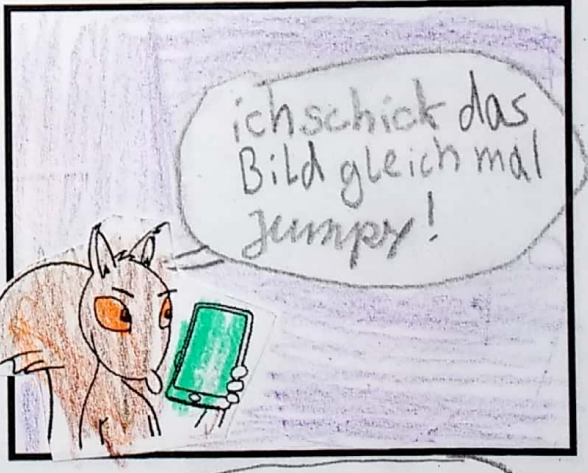 ich schick das
Bild gleich mal
Jumpy!